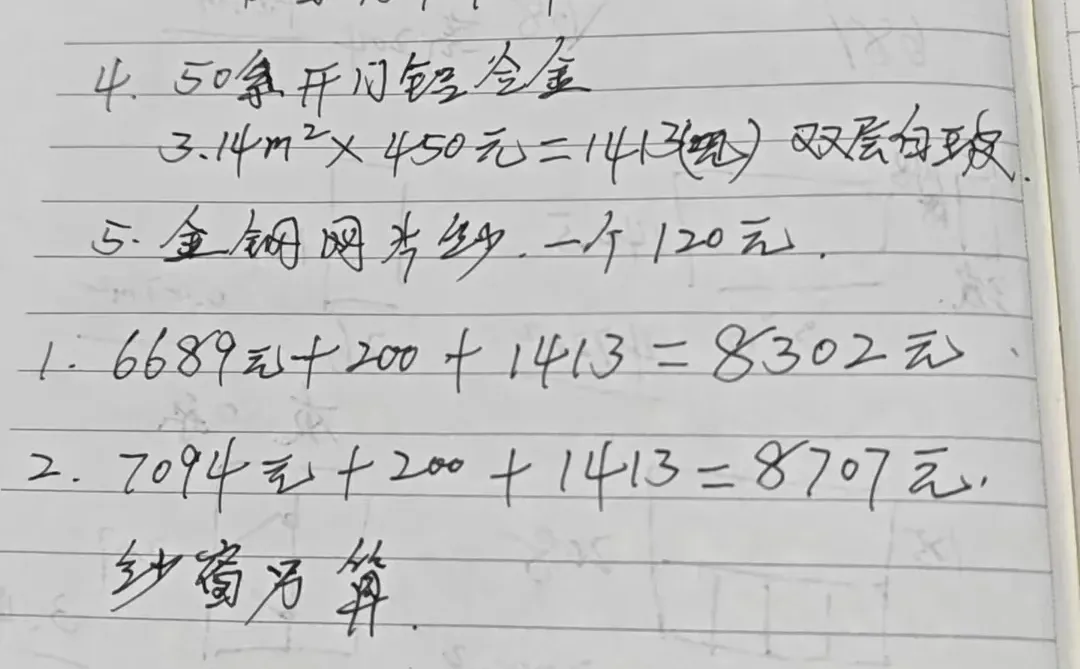 4. 50系开门铝合金
3.14m²×450元=1413(元) 双层白玻.
5. 金钢网 纱. 一个120元.
1. 6689元+200+1413=8302元.
2. 7094元+200+1413=8707元.
纱窗另算.